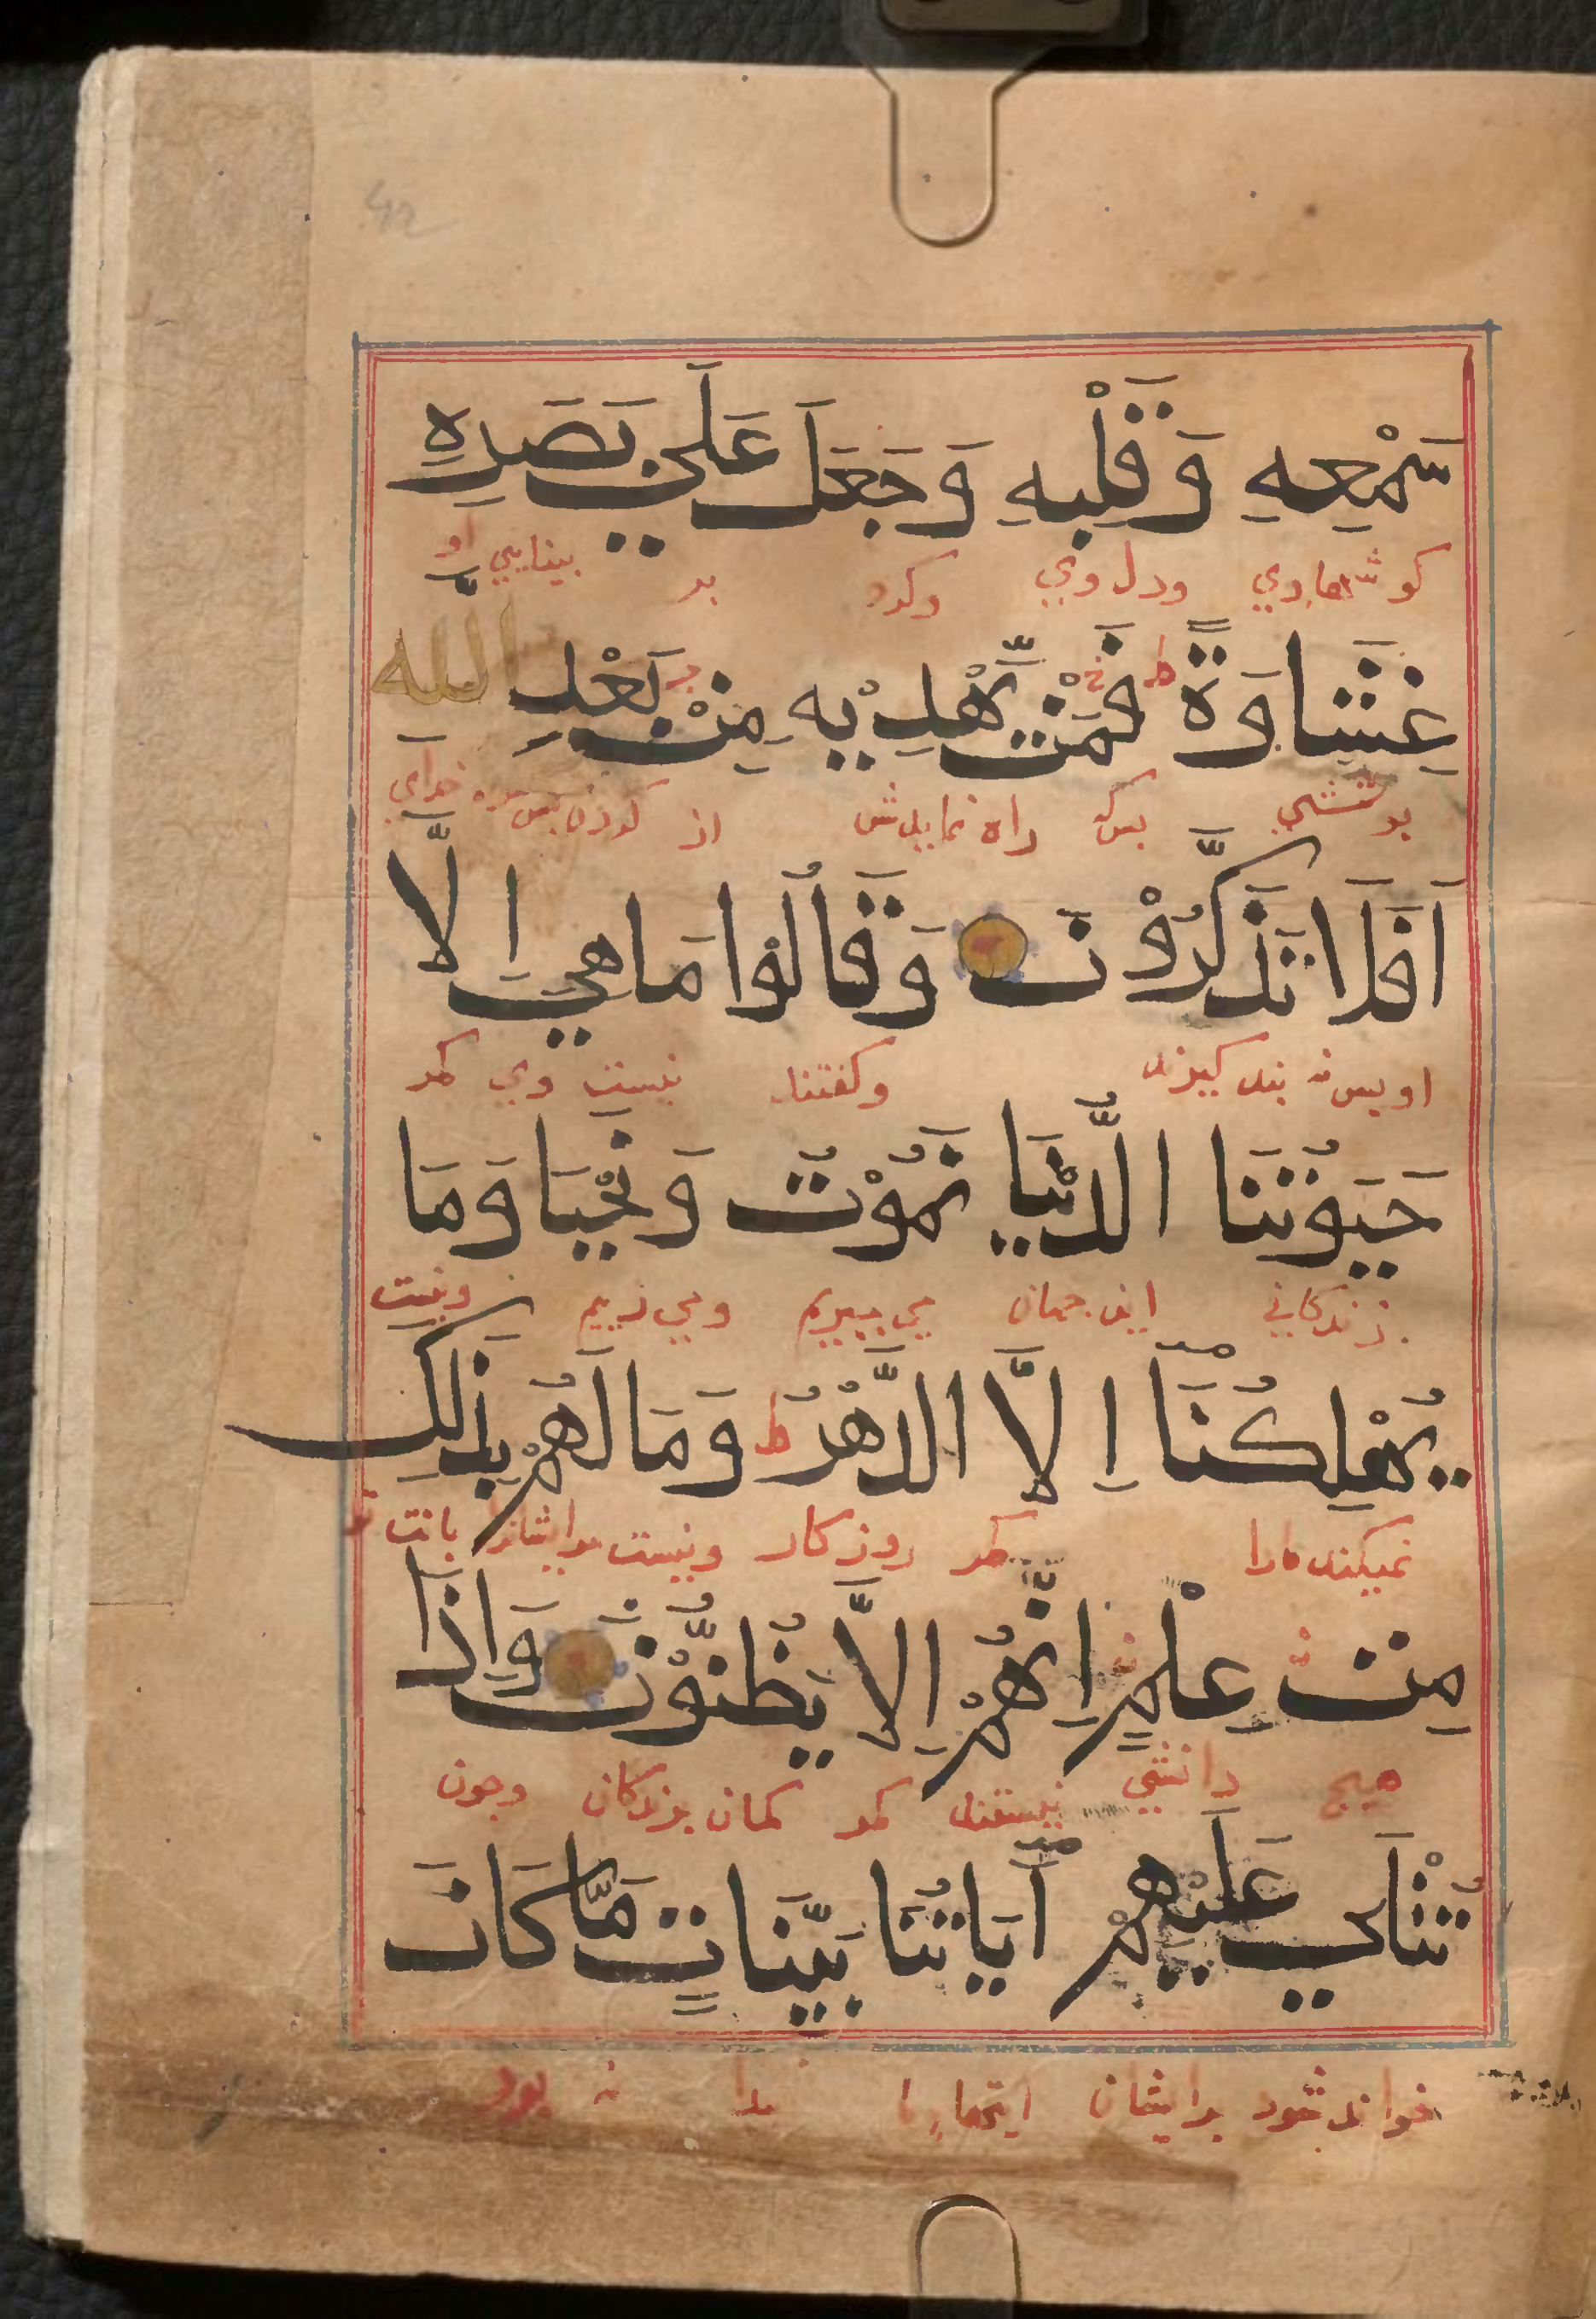 سَمْعِهِ وَقَلْبِهِ وَجَعَلَ عَلَي بَصَرِهِ
كوشهاوي ودل وي وكرد بر بينايي او
غِشَاوَةً ط فَمَنْ يَّهْدِيْهِ مِنْ بَعْدِ اللهِ
پوششي پس كه راه نمايدش از خداي
اَفَلَا تَذَكَّرُوْنَ وَقَالُوْا مَا هِيَ اِلَّا
او پس نه پند كيرند وكفتند نيست وي مكر
حَيَوتُنَا الدُّنْيَا نَمُوْتُ وَنَحْيَا وَمَا
زندكاني اين جهان مي ميريم ومي زييم ونيست
يُهْلِكُنَا اِلَّا الدَّهْرُ ط وَمَا لَهُمْ بِذٰلِكَ
نميكند مارا مكر روزكار ونيست مرايشانرا
مِنْ عِلْمٍ اِنَّهُمْ اِلَّا يَظُنُّوْنَ وَاِذَا
هيچ دانشي نيستند مكر كمان برندكان وچون
تُتْلَي عَلَيْهِمْ آيَاتُنَا بَيِّنَاتٍ مَّا كَانَ
خواندشود برايشان ايتهاء ما نه بود